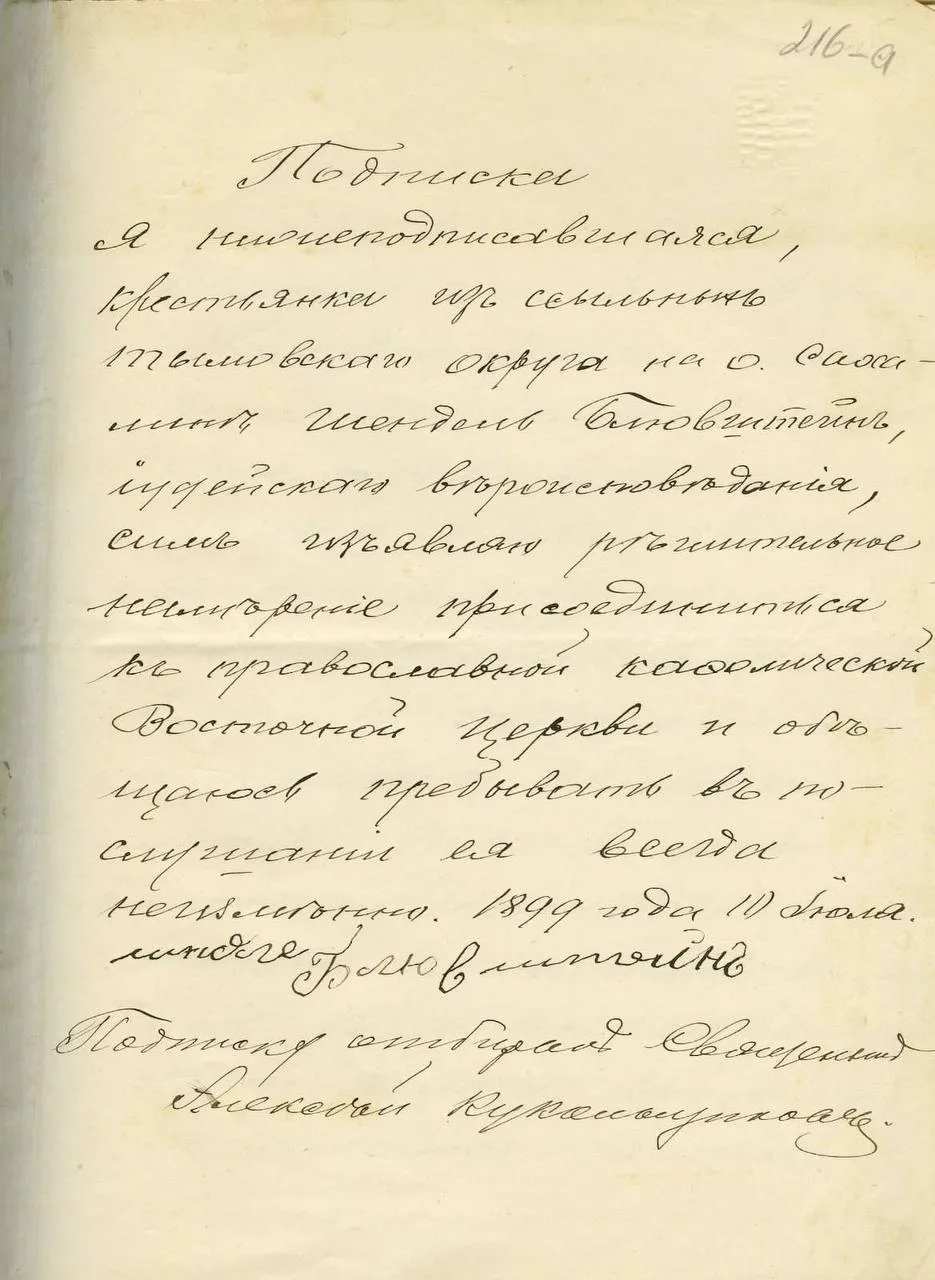 216-а
Подписка
Я нижеподписавшаяся,
крестьянка изъ ссыльныхъ
Тымовскаго округа на о. Саха-
линѣ Шендель Блювштейнъ,
іудейскаго вѣроисповѣданія,
симъ изъявляю рѣшительное
намѣреніе присоединиться
къ православной каѳолической
Восточной Церкви и обѣ-
щаюсь пребывать въ по-
слушаніи ея всегда
неизмѣнно. 1899 года 10 Іюля.
Блювштейнъ
Подписку отбиралъ Священникъ
Алексѣй Кукольщиковъ.